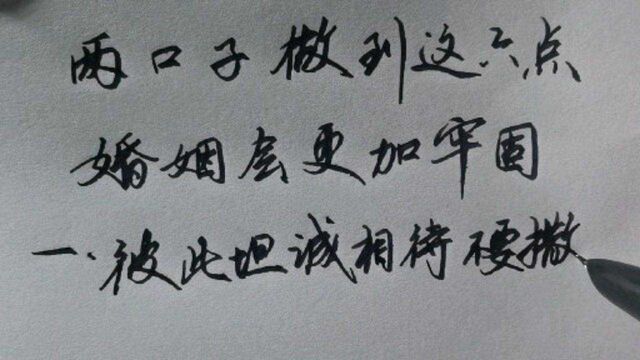 两口子做到这六点
婚姻会更加牢固
一.彼此坦诚相待不要撒